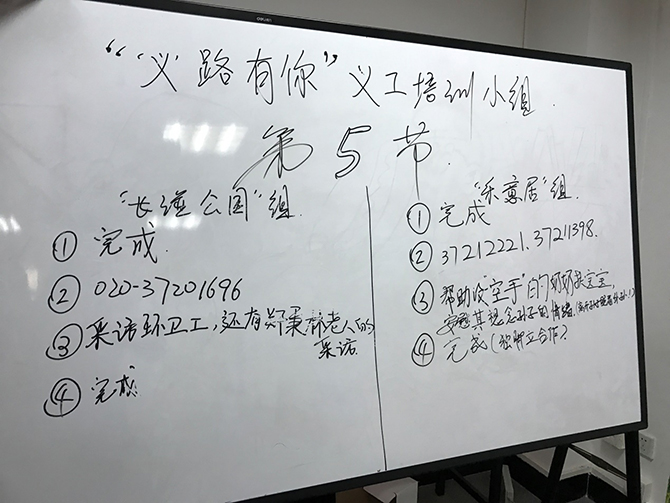 deli
“‘义’路有你”义工培训小组.
第5节.
“长堽公园”组.
① 完成.
② 020-37201696
③ 采访环卫工,还有只秉龄老人的
采访.
④ 完成.
“乐意居”组.
① 完成
② 37212221.37211398.
③ 帮助“空手”的奶奶
其想念孙子的情绪.
④ 完成(独脚立合作).